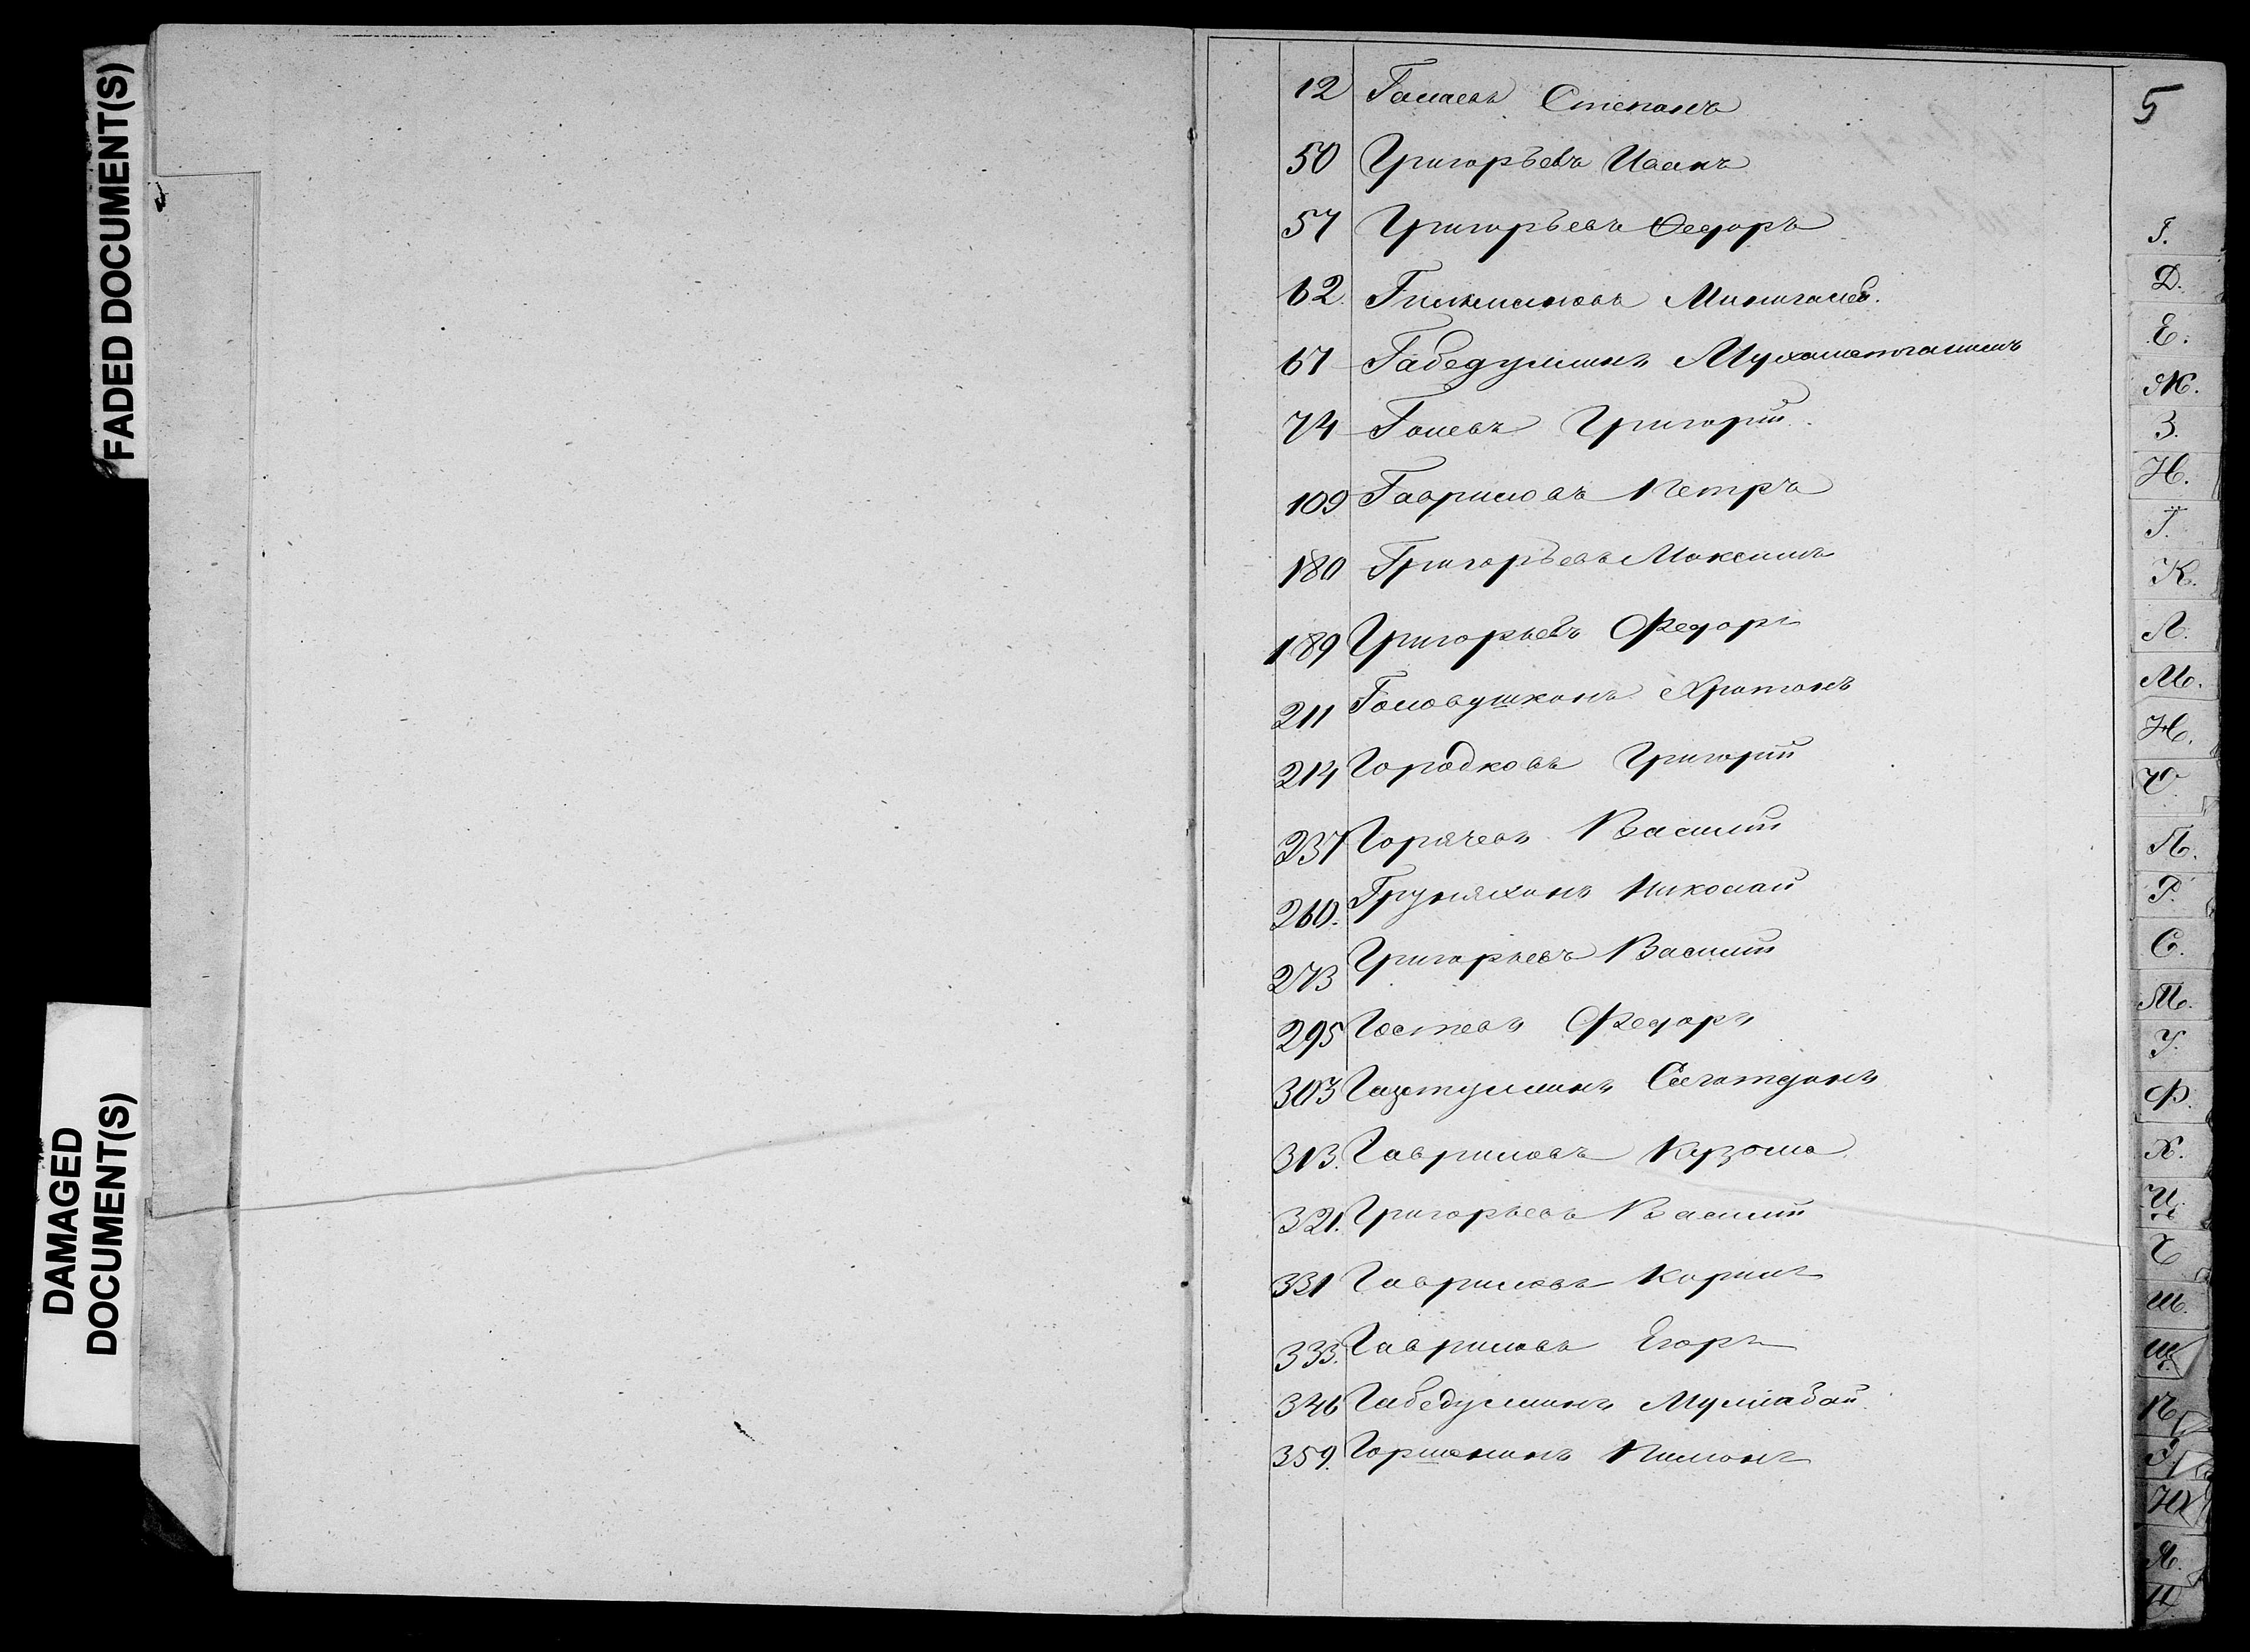 FADED DOCUMENT(S)
DAMAGED
DOCUMENT(S)
5
12 Галаевъ Степанъ
50 Григорьевъ Иванъ
57 Григорьевъ Ѳедоръ
62. Гильмановъ Минигалей.
67 Габедуллинъ Мухаметгалимъ
74 Голевъ Григорій.
109 Гавриловъ Петръ
180 Григорьевъ Максимъ
189 Григорьевъ Федоръ
211 Головушкинъ Харитонъ
214 Городковъ Григорій
237 Горячевъ Василій
260. Груняхинъ Николай
273 Григорьевъ Василій
295 Гостевъ Федоръ
303 Сагатдинъ
313. Гавриловъ Кузьма
321. Григорьевъ Василій
331 Гавриловъ Карпъ
333. Гавриловъ Егоръ
346 Габедуллинъ Муллабай.
359. Горшенинъ Пименъ
Г.
Д.
Е.
Ж.
З.
И.
І.
К.
Л.
М.
Н.
О.
П.
Р.
С.
Т.
У.
Ф.
Х.
Ц.
Ч.
Ш.
Щ.
Ю
Я.